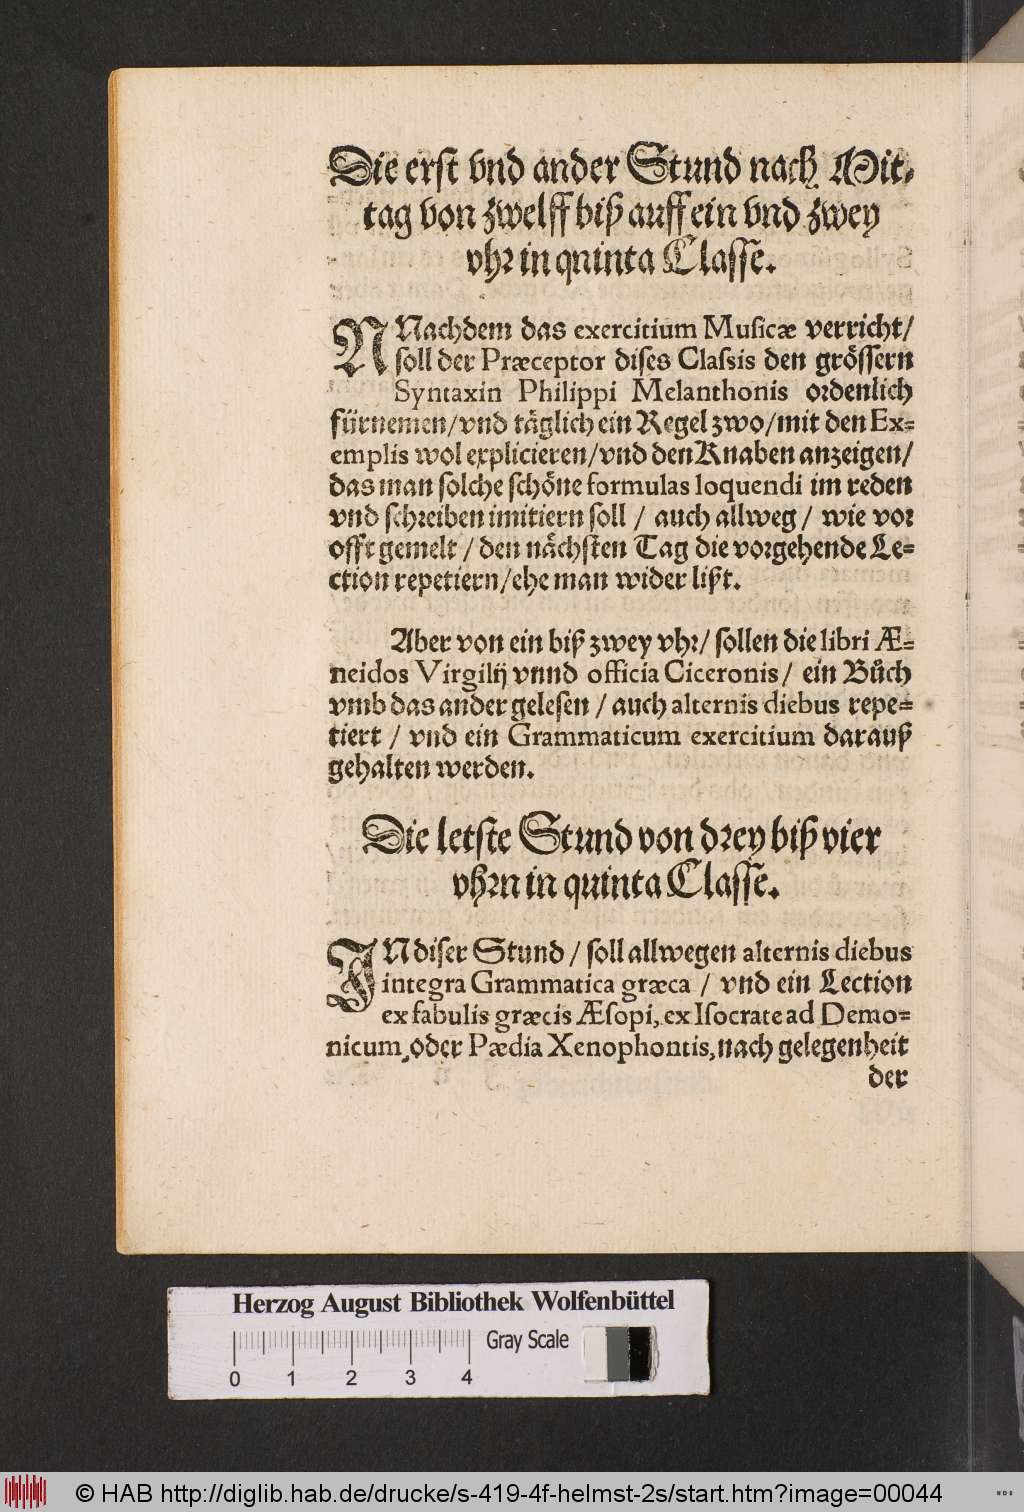 Die erst vnd ander Stund nach Mit-
tag von zwelff biß auff ein vnd zwey
vhr in qninta Classe.
NNachdem das exercitium Musicæ verricht/
soll der Præceptor dises Classis den grössern
Syntaxin Philippi Melanthonis ordenlich
fürnemen/vnd täglich ein Regel zwo/mit den Ex=
emplis wol explicieren/vnd den Knaben anzeigen/
das man solche schöne formulas loquendi im reden
vnd schreiben imitiern soll / auch allweg / wie vor
offt gemelt / den nächsten Tag die vorgehende Le=
ction repetiern/ehe man wider lißt.
Aber von ein biß zwey vhr/ sollen die libri Æ=
neidos Virgilij vnnd officia Ciceronis/ ein Bůch
vmb das ander gelesen / auch alternis diebus repe=
tiert / vnd ein Grammaticum exercitium darauß
gehalten werden.
Die letste Stund von drey biß vier
vhrn in quinta Classe.
IN diser Stund / soll allwegen alternis diebus
integra Grammatica græca / vnd ein Lection
ex fabulis græcis Æsopi, ex Isocrate ad Demo=
nicum, oder Pædia Xenophontis, nach gelegenheit
der
Herzog August Bibliothek Wolfenbüttel
Gray Scale
0 1 2 3 4
© HAB http://diglib.hab.de/drucke/s-419-4f-helmst-2s/start.htm?image=00044